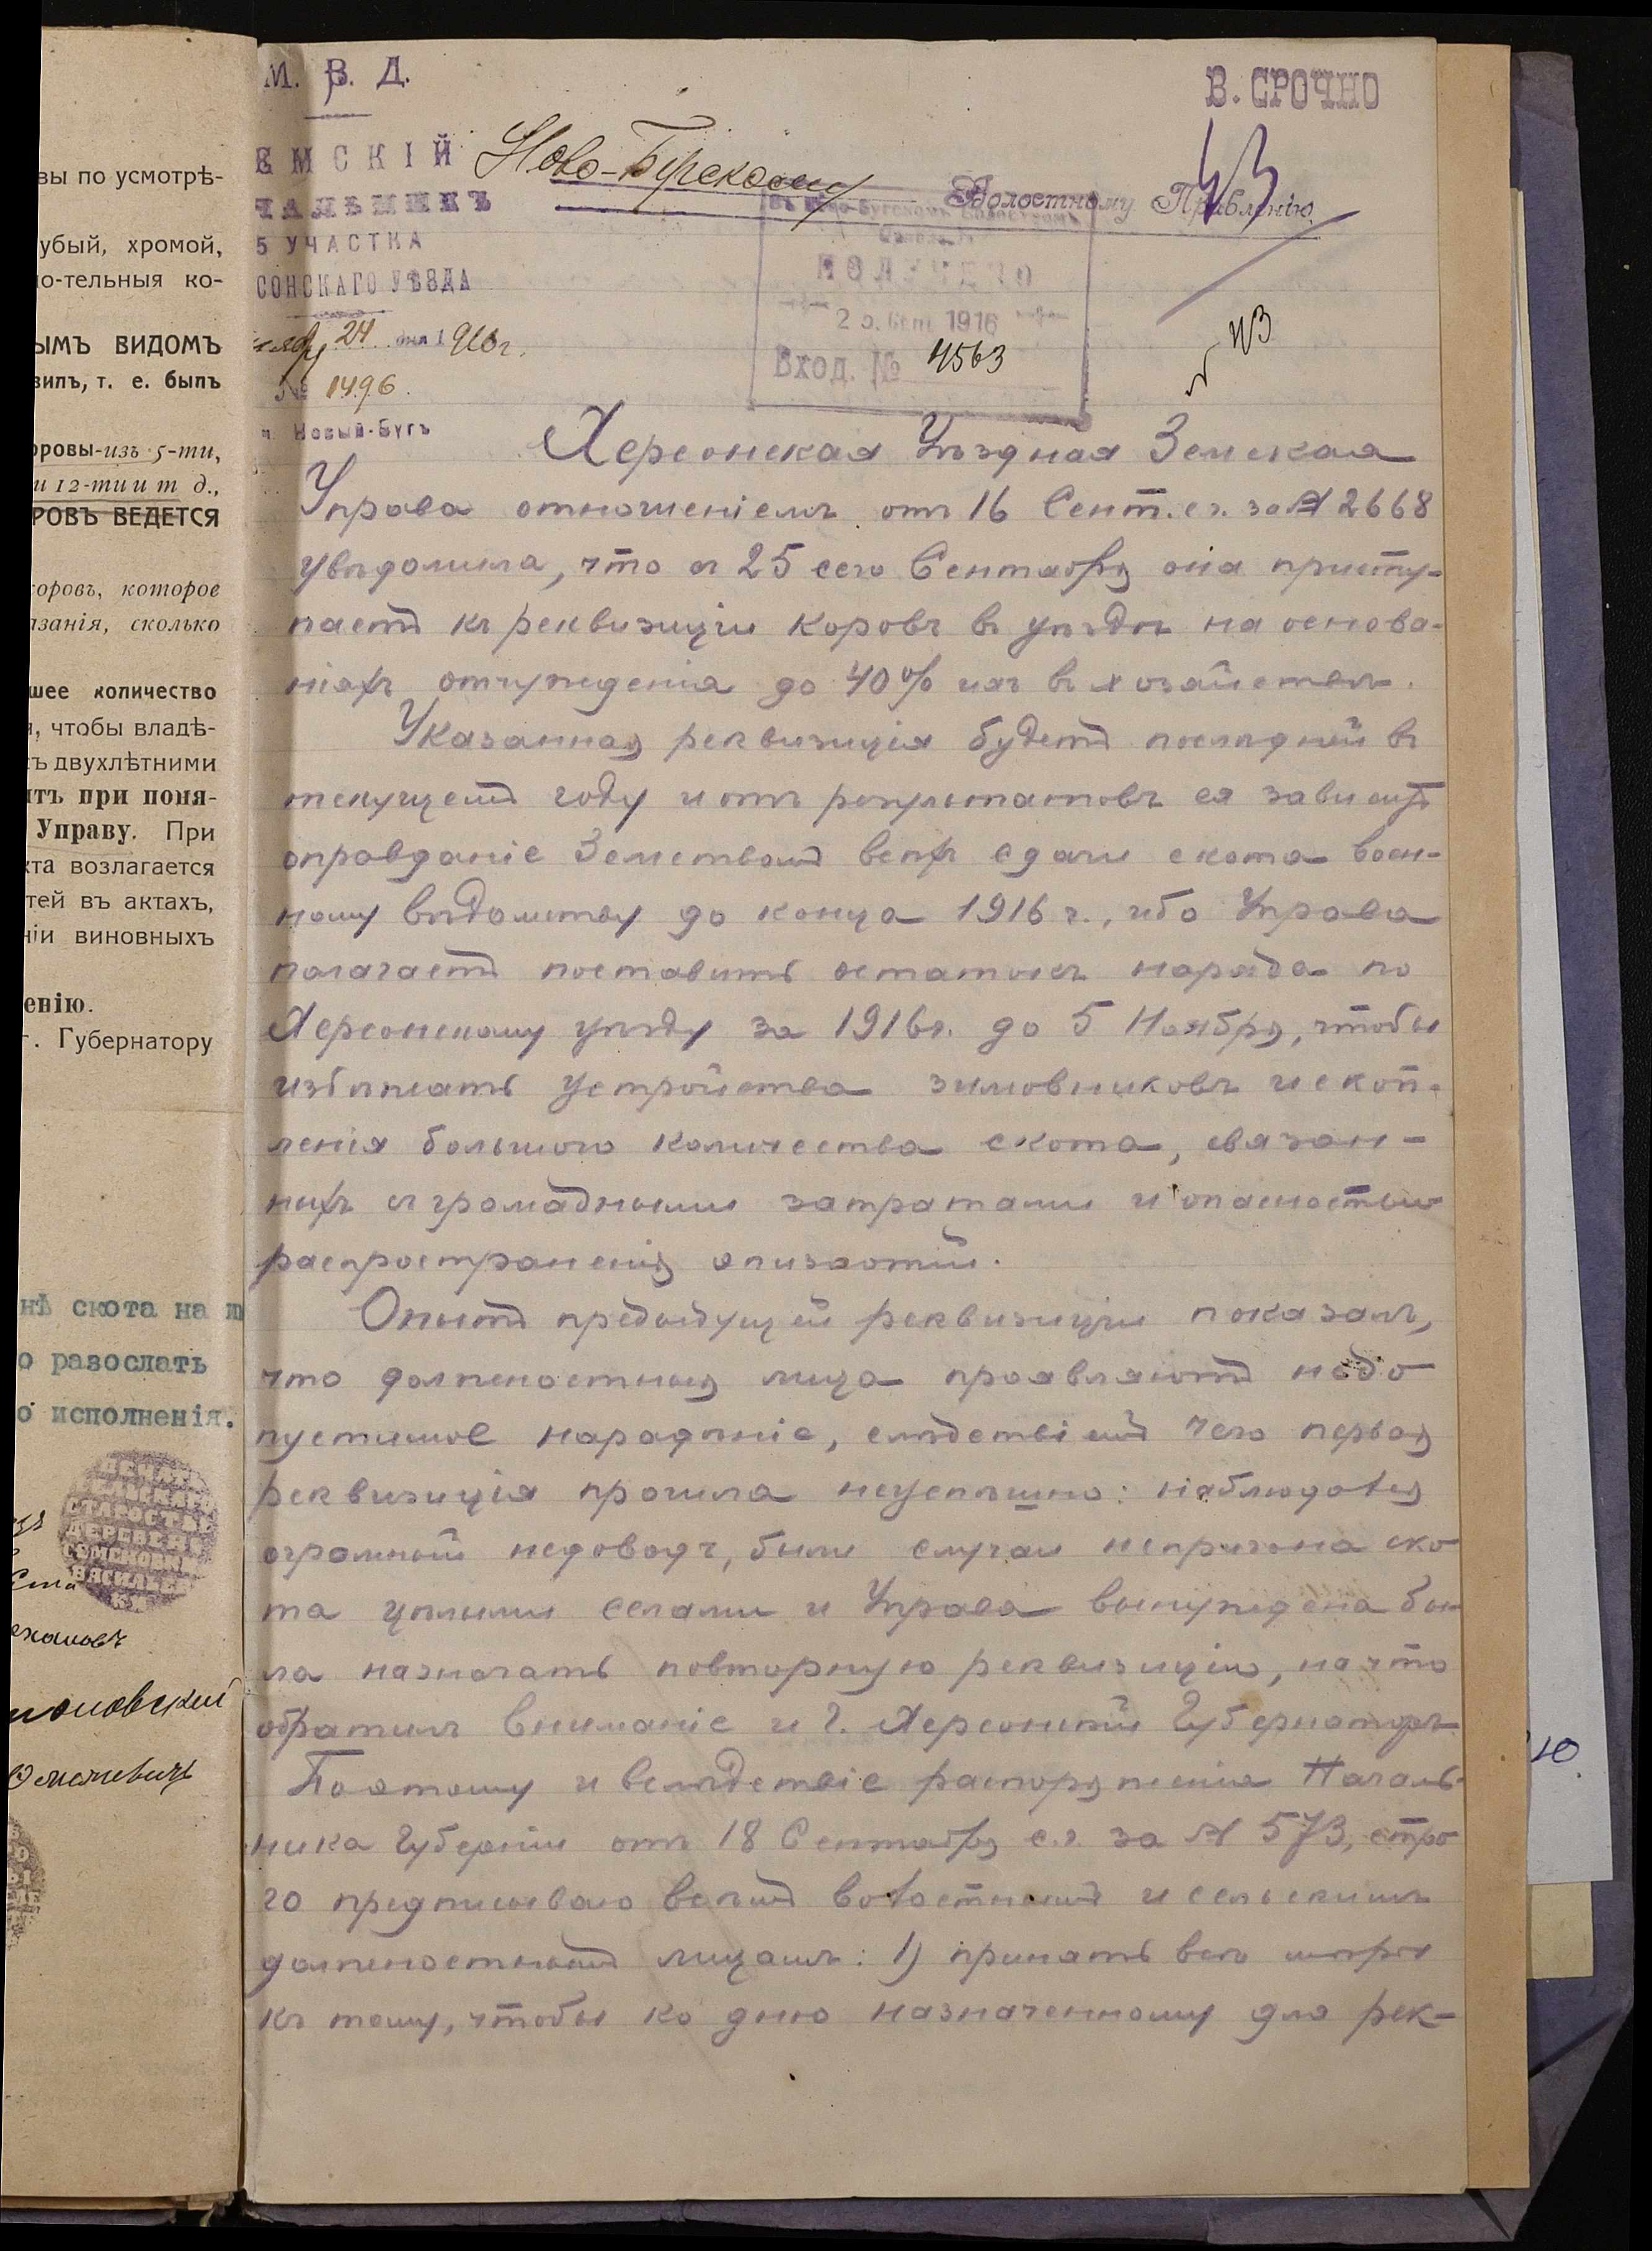 вы по усмотрѣ-
убый, хромой,
о-тельныя ко-
ымъ видомъ
вилъ, т. е. былъ
оровы-изъ 5-ти,
и 12-ти и т д.,
РОВЪ ВЕДЕТСЯ
коровъ, которое
азанія, сколько
шее количество
, чтобы владѣ-
ъ двухлѣтними
итъ при поня-
Управу. При
кта возлагается
тей въ актахъ,
ніи виновныхъ
енію.
г. Губернатору
нѣ скота на
о разослать
о исполненія.
М. В. Д.
В. СРОЧНО
ЕМСКІЙ
ЧАЛЬНИКЪ
5 УЧАСТКА
СОНСКАГО УѢЗДА
24 дня 1916 г.
№ 1496.
м. Новый-Бугъ
Ново-Бугскому Волостному Правленію.
ПОЛУЧЕНО
1916
Вход. № 4563
43
43
Херсонская Уѣздная Земская
Управа отношеніемъ отъ 16 Сент. с.г. за № 2668
увѣдомила, что съ 25 сего Сентября она присту-
паетъ къ реквизиціи коровъ въ уѣздѣ на основа-
ніяхъ отчужденія до 40% ихъ въ хозяйствѣ.
Указанная реквизиція будетъ послѣдней въ
текущемъ году и отъ результатовъ ея зависитъ
оправданіе Земствомъ всѣхъ сдачи скота воен-
ному вѣдомству до конца 1916 г., ибо Управа
полагаетъ поставить остатокъ наряда по
Херсонскому уѣзду за 1916 г. до 5 Ноября, чтобы
избѣжать устройства зимовниковъ и скоп-
ленія большого количества скота, связан-
ныхъ съ громадными затратами и опасностью
распространенія эпизоотій.
Опытъ предыдущей реквизиціи показалъ,
что должностныя лица проявляютъ недо
пустимое нерадѣніе, слѣдствіемъ чего первая
реквизиція прошла неуспѣшно: наблюдался
огромный недоводъ, были случаи непригона ско
та цѣлыми селами и Управа вынуждена бы-
ла назначать повторную реквизицію, на что
обратилъ вниманіе и Г. Херсонскій Губернаторъ.
Поэтому и вслѣдствіе распоряженія Началь-
ника Губерніи отъ 18 Сентября с.г. за № 573, стро
го предписываю всѣмъ волостнымъ и сельскимъ
должностнымъ лицамъ: 1) принять всѣ мѣры
къ тому, чтобы ко дню назначенному для рек-